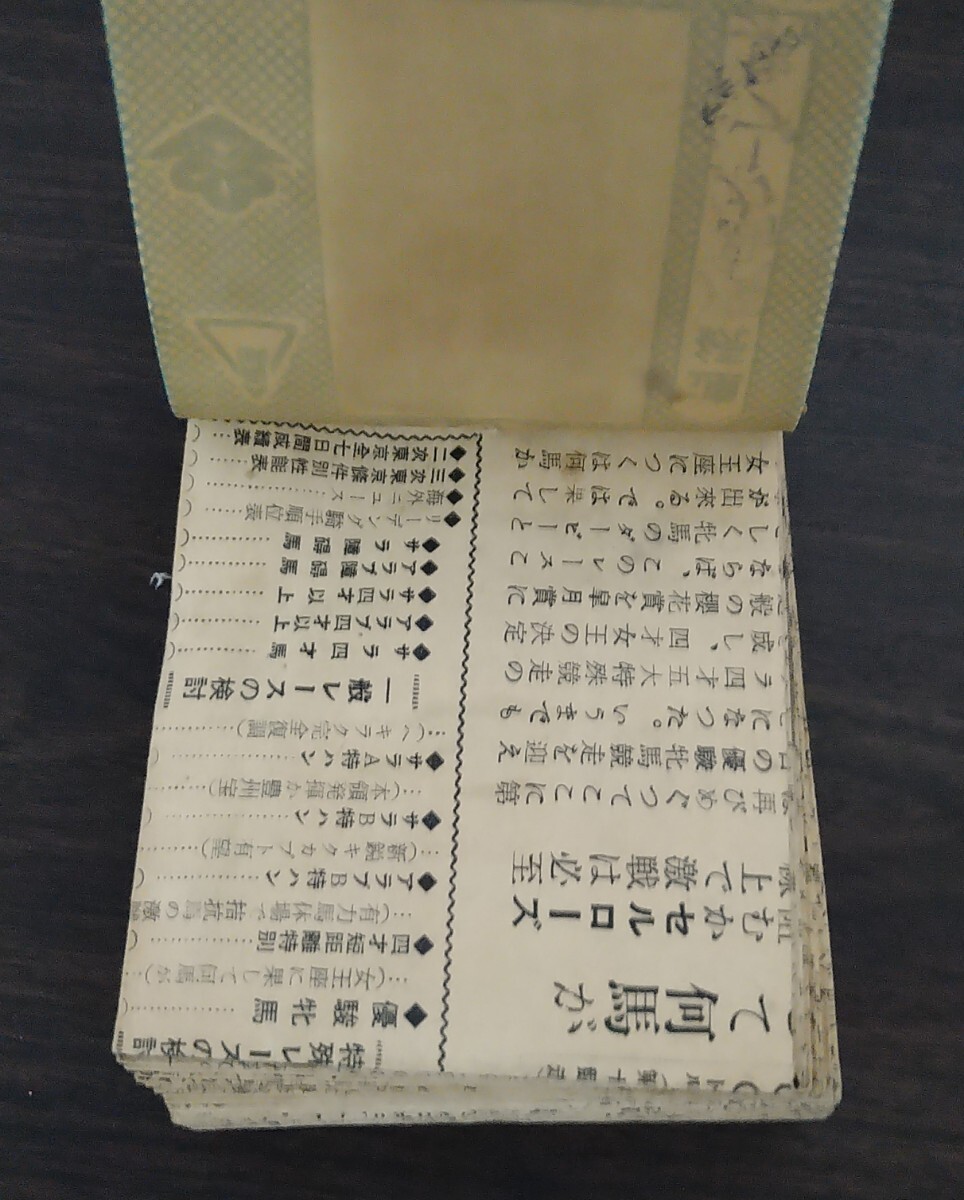 て何馬が
むかセルローズ
上で激戦は必至
再びめぐつてここに第
の優駿牝馬競走を迎え
になつた。いうまでも
ラ四才五大特殊競走の
成し、四才女王の決定
般の櫻花賞を皐月賞に
ならば、このレースこ
しく牝馬のダービーと
が出来る。では果して
女王座につくは何馬か
特殊レースの検討
◆優駿牝馬…………(
…(女王座に果して何馬か)
◆四才短距離特別………(
…(有力馬休場で拮抗馬の激
◆アラブB特ハン………(
…(新鋭キタカブト有望)
◆サラB特ハン…………(
…(本領発揮か豊州宝)
◆サラA特ハン…………(
…(ヘキラク完全復調)
一般レースの検討
◆サラ四才馬…………(
◆アラブ四才以上………(
◆サラ四才以上…………(
◆アラブ障碍馬…………(
◆サラ障碍馬…………(
◆リーディング騎手順位表……(
◆海外ニュース…………(
◆三次東京條件別性能表……(
◆二次東京全七日間成績表…(